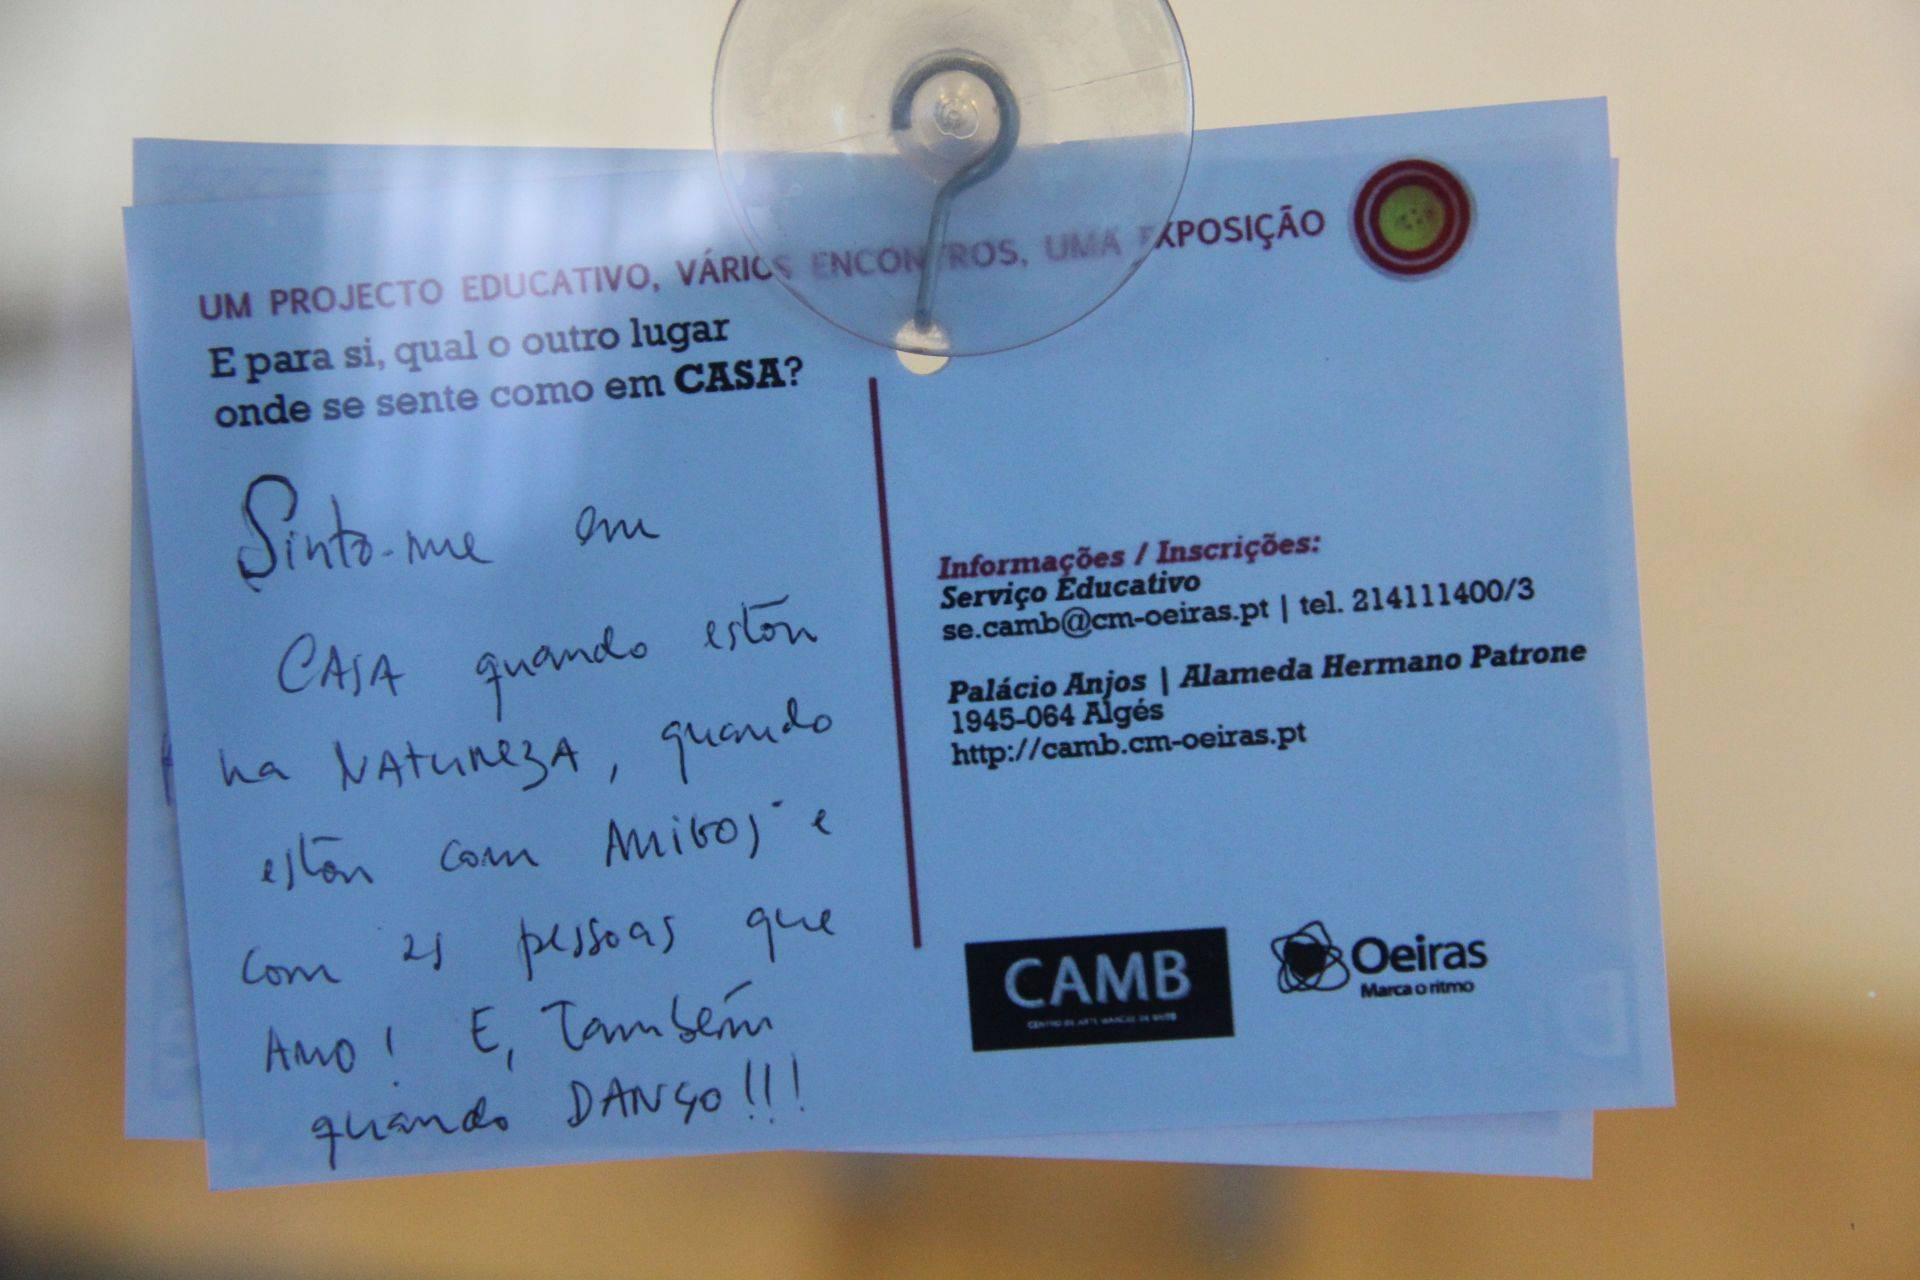 UM PROJECTO EDUCATIVO, VÁRIOS ENCONTROS, UMA EXPOSIÇÃO
E para si, qual o outro lugar
onde se sente como em CASA?
Sinto-me em
CASA quando estou
na NATUREZA, quando
estou com AMIGOS e
com as pessoas que
AMO! E, também
quando DANÇO!!!
Informações / Inscrições:
Serviço Educativo
se.camb@cm-oeiras.pt | tel. 214111400/3
Palácio Anjos | Alameda Hermano Patrone
1945-064 Algés
http://camb.cm-oeiras.pt
CAMB
Oeiras
Marca o ritmo